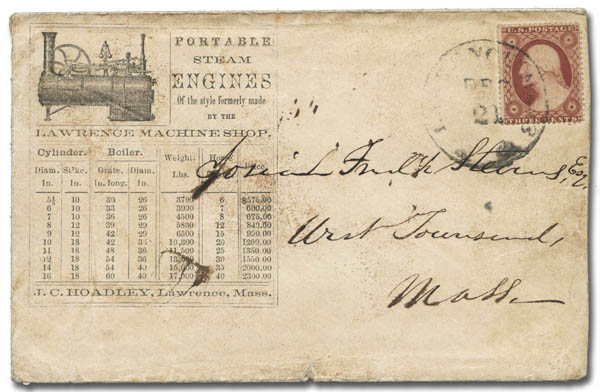 PORTABLE
STEAM
ENGINES
Of the style formerly made
BY THE
LAWRENCE MACHINE SHOP.
Cylinder. Boiler. Weight. Horse Price.
Diam. St'ke. Grate. Diam. Lbs.
In. In. In. long. In.
5½ 10 30 26 3700 6 $575.00
6 10 33 26 3900 7 600.00
7 10 36 26 4500 8 675.00
8 12 39 29 5800 12 840.00
9 12 42 29 6500 15 950.00
10 18 42 10,300 20 1200.00
11 18 48 36 11,500 25 1350.00
12 18 54 36 30 1550.00
14 18 54 40 35 2000.00
16 18 60 40 40 2300.00
J. C. HOADLEY, Lawrence, Mass.
U.S. POSTAGE
THREE CENTS
21
Josiah Stevens, Esq.
West Townsend,
Mass.